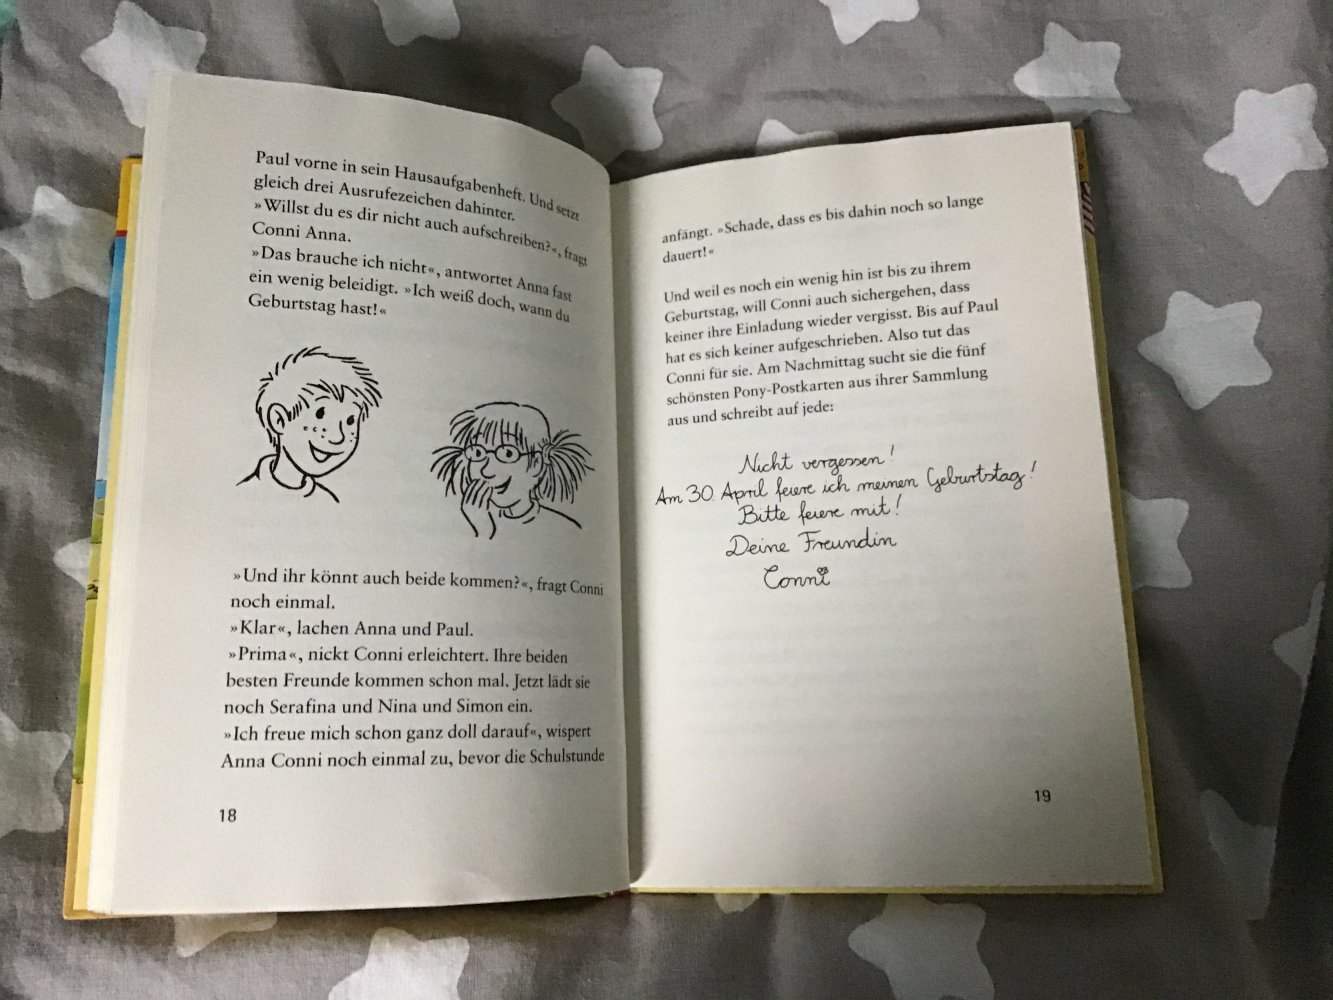 Paul vorne in sein Hausaufgabenheft. Und setzt
gleich drei Ausrufezeichen dahinter.
»Willst du es dir nicht auch aufschreiben?«, fragt
Conni Anna.
»Das brauche ich nicht«, antwortet Anna fast
ein wenig beleidigt. »Ich weiß doch, wann du
Geburtstag hast!«
»Und ihr könnt auch beide kommen?«, fragt Conni
noch einmal.
»Klar«, lachen Anna und Paul.
»Prima«, nickt Conni erleichtert. Ihre beiden
besten Freunde kommen schon mal. Jetzt lädt sie
noch Serafina und Nina und Simon ein.
»Ich freue mich schon ganz doll darauf«, wispert
Anna Conni noch einmal zu, bevor die Schulstunde
18
anfängt. »Schade, dass es bis dahin noch so lange
dauert!«
Und weil es noch ein wenig hin ist bis zu ihrem
Geburtstag, will Conni auch sichergehen, dass
keiner ihre Einladung wieder vergisst. Bis auf Paul
hat es sich keiner aufgeschrieben. Also tut das
Conni für sie. Am Nachmittag sucht sie die fünf
schönsten Pony-Postkarten aus ihrer Sammlung
aus und schreibt auf jede:
Nicht vergessen!
Am 30. April feiere ich meinen Geburtstag!
Bitte feiere mit!
Deine Freundin
Conni
19